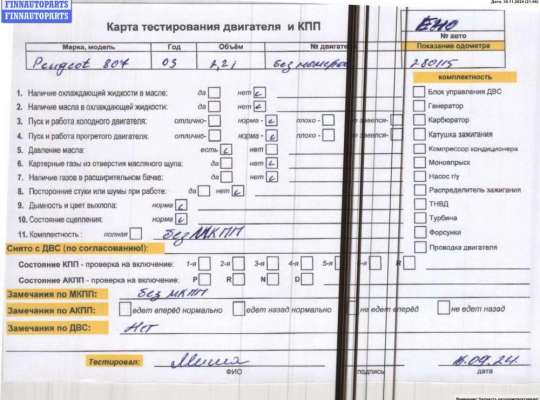 FINNAUTOPARTS
FINNAUTOPARTS
FINNAUTOPARTS
Карта тестирования двигателя и КПП
№ авто
Марка, модель Год Объём № двигателя Показание одометра
Peugeot 807 03 2,2i Без номера 280115
комплектность
1. Наличие охлаждающей жидкости в масле: да нет
Блок управления ДВС
2. Наличие масла в охлаждающей жидкости: да нет
Генератор
3. Пуск и работа холодного двигателя: отлично- норма - плохо -
Карбюратор
4. Пуск и работа прогретого двигателя: отлично- норма - плохо -
Катушка зажигания
5. Давление масла: есть нет
Компрессор кондиционера
6. Картерные газы из отверстия масляного щупа: да нет
Моновпрыск
7. Наличие газов в расширительном бачке: да нет
Насос г/у
8. Посторонние стуки или шумы при работе: да нет
Распределитель зажигания
9. Дымность и цвет выхлопа: норма
ТНВД
10. Состояние сцепления: норма
Турбина
11. Комплектность : полная Без МКПП
Форсунки
Проводка двигателя
Снято с ДВС (по согласованию!):
Состояние КПП - проверка на включение: 1-я 2-я 3-я 4-я 5-я R
Состояние АКПП - проверка на включение: P R N D
Замечания по МКПП: без мкпп
Замечания по АКПП: едет вперед нормально едет назад нормально не едет вперёд не едет назад
Замечания по ДВС: Нет
Тестировал: Миша 16.09.24
ФИО подпись дата